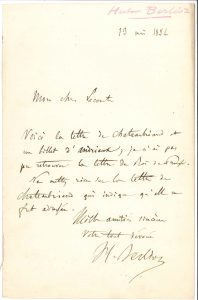 Hector Berlioz
19 mai 1854
Mon cher Lecourt
Voici la lettre de Chateaubriand et
un billet d'Andrieux; je n'ai pas
pu retrouver la lettre du Roi de Prusse.
Ne mettez rien sur la lettre de
Chateaubriand qui indique qu'elle a
été
Mille amitiés sincères
Votre tout dévoué
H. Berlioz